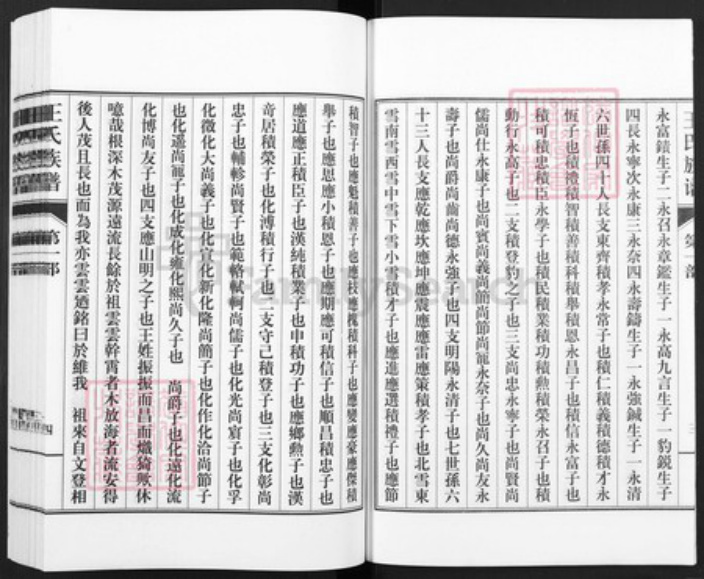 永富錶生子二永召永章鑑生子一永高九言生子一豹鋭生子
四長永寧次永康三永奈四永壽鑄生子一永強鍼生子一永清
六世孫四十人長支東齊積孝永常子也積仁積義積德積才永
恆子也積禮積智積善積科積舉積恩永昌子也積信永富子也
積可積忠積臣永學子也積民積業積功積勲積榮永召子也積
動行永高子也二支積登豹之子也三支尚忠永寧子也尚賢尚
儒尚仕永康子也尚賓尚義尚簡尚節尚寵永奈子也尚久尚友永
壽子也尚爵尚齒尚德永強子也四支明陽永清子也七世孫六
十三人長支應乾應坎應坤應震應應雷應策積孝子也北雪東
雪南雪西雪中雪下雪小雪積才子也應進應選積禮子也應節
積智子也應魁積善子也應枝應槐積科子也應變應豪應傑積
舉子也應思應小積恩子也應期應可積信子也順昌積忠子也
應道應正積臣子也漢純積業子也申積功子也應鄉勲子也漢
奇居積榮子也化溥積行子也二支守己積登子也三支化彰尚
忠子也輔軫尚賢子也範輅軾軻尚儒子也化光尚賓子也化孚
化微化大尚義子也化宣化新化隆尚簡子也化作化洽尚節子
也化遥尚寵子也化成化雍化熙尚久子也　尚爵子也化遠化流
化博尚友子也四支應山明之子也王姓振振而昌而熾猗歟休
噫哉根深木茂源遠流長餘於祖雲雲幹霄者木放海者流安得
後人茂且長也而為我亦雲雲迺銘曰於維我　祖來自文登相
王氏族譜
第一部
王氏族譜
第一部
FamilySearch